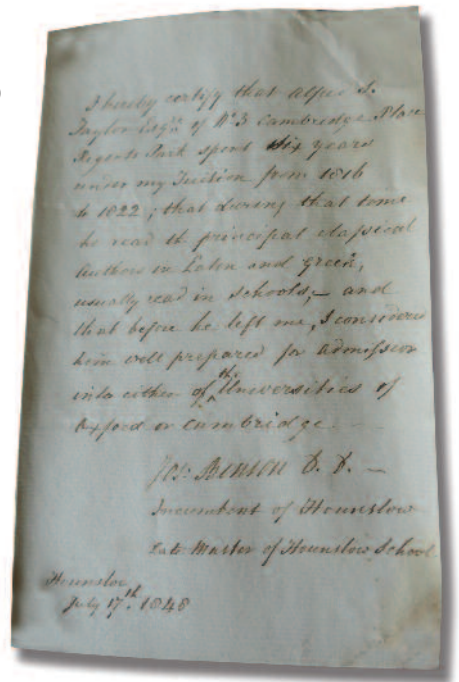 I hereby certify that Alfred S.
Taylor Esqre. of No. 3 Cambridge Place
Regents Park spent six years
under my Tuition from 1816
to 1822; that during that time
he read the principal classical
Authors in Latin and Greek,
usually read in Schools, – and
that before he left me, I considered
him well prepared for admission
into either of the Universities of
Oxford or Cambridge. –
Jos: BENSON D. D. –
Incumbent of Hounslow
Late Master of Hounslow School
Hounslow
July 17th. 1848